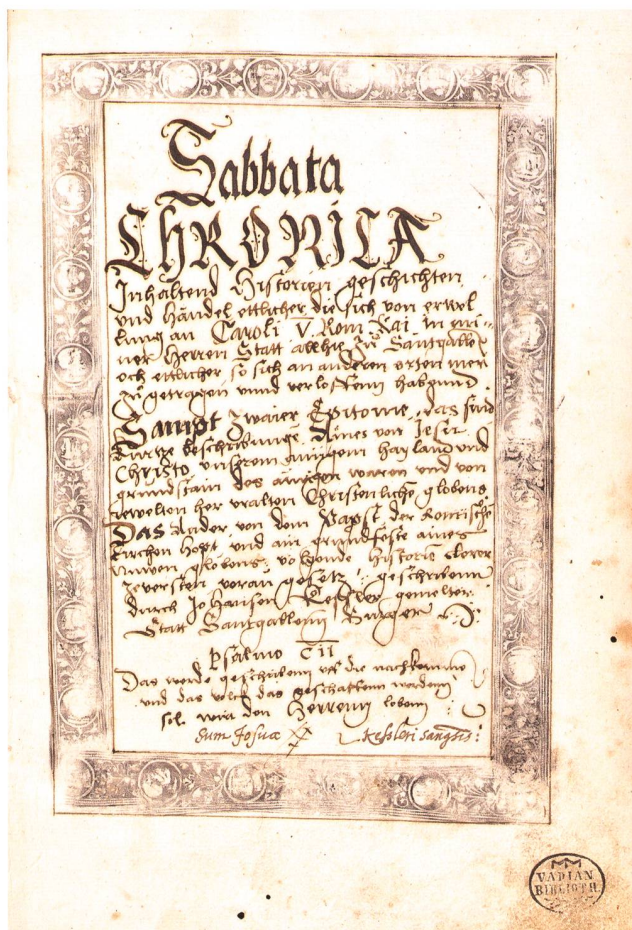 Sabbata
CHRONICA
Inhaltend Historien geschichten
und händel ettlicher, die sich von erwel
lung an Caroli V. Rom. Kai. in mi=
ner Herren Statt allhie zu Santgallen
och ettlicher so sich an anderen orten mer
zu getragen unnd verloffenn habennd
Sampt zwaier Epitome, das sind
kurtze beschribunge. Aines von Jesu
Christo unserem ainigem hayland und
grundstain des ainigen waren und von
gewelten her uralten Christenliche globens
Das Ander von dem Papst der Romische
kirchen hopt und ain grundfeste aines
nuwen globens, volgende historia
zevorsten voran gesetzt: geschribenn
durch Johansen Kessler gemelter
Statt Santgallenn Burger
Psalmo CII
Das werde geschribenn uff die nachkommen
und das volck das geschaffenn werden
sol wirt den Herrenn loben
Sum Josuæ Kesleri Sangtis:
VADIAN
BIBLIOTH.